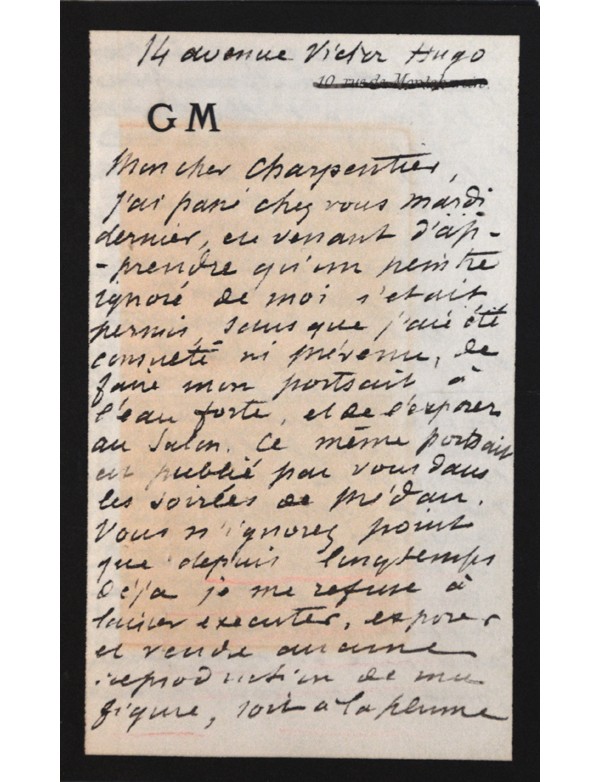 14 avenue Victor Hugo
10 rue de Montchanin.
GM
Mon cher Charpentier,
j'ai passé chez vous mardi
dernier, en venant d'ap-
-prendre qu'un peintre
ignoré de moi s'était
permis, sans que j'aie été
consulté ni prévenu, de
faire mon portrait à
l'eau forte, et de l'exposer
au Salon. Ce même portrait
est publié par vous dans
les soirées de Médan.
Vous n'ignorez point
que depuis longtemps
déja je me refuse à
laisser executer, exposer
et vendre aucune
reproduction de ma
figure, soit à la plume